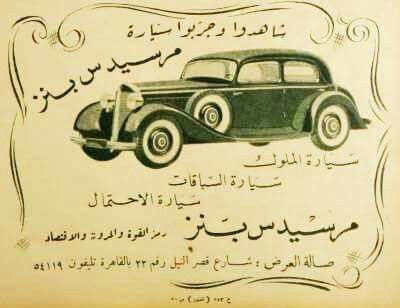 شاهدوا وجربوا سيارة
مرسيدس بنز
سيارة الملوك
سيارة السباقات
سيارة الاحتمال
مرسيدس بنز
رمز القوة والمرونة والاقتصاد
صالة العرض : شارع قصر النيل رقم ٢٢ بالقاهرة تليفون ٥٤١١٩